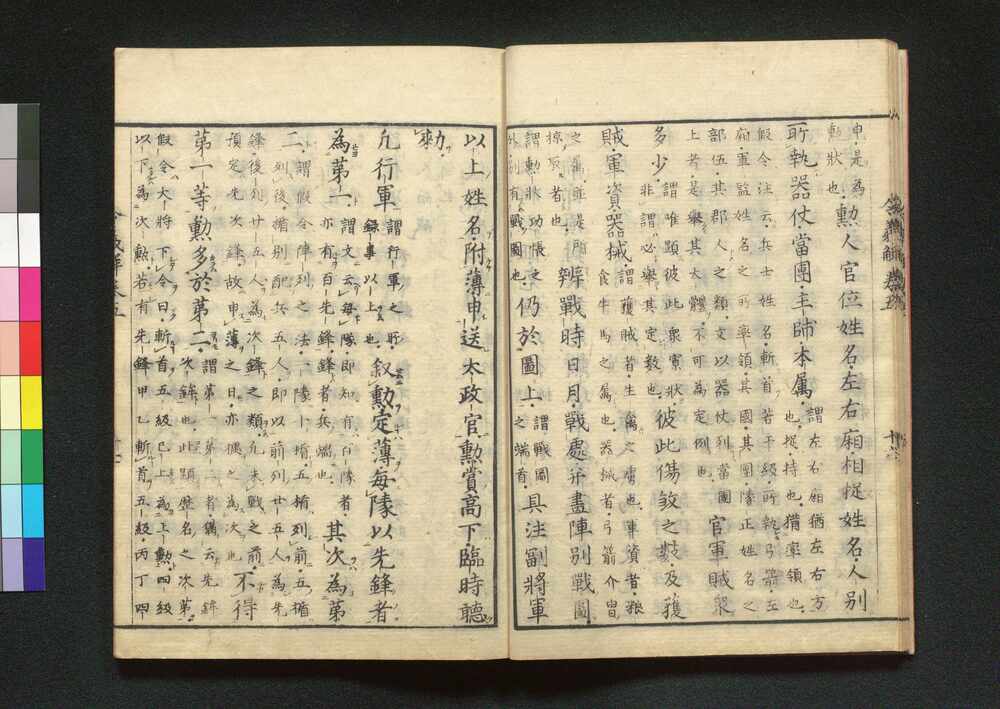 申是為
勳狀也
勳人官位姓名左右廂相捉姓名人別
所執器仗當團主帥本属
謂左右廂猶左右方
也捉持也猶率領也
假令注云兵士姓名斬首若干級所執弓箭左
廂軍監姓名之所率領其國其團隊正姓名之
部伍其郡人之類文以器仗列當團
上者是舉其大體不可為定例也
官軍賊衆
多少
謂唯顕彼此衆寡狀
非謂必舉其定数也
彼此傷敘之数及獲
賊軍資器械
謂獲賊者生禽之虜也軍資者粮
食牛馬之属也器械者弓箭介冑
之属並是所
者也
辨戰時日月戰處并畫陣別戰圖
謂勳狀功帳之
外別有戰圖也
仍於圖上
謂戰圖
之端首
具注副將軍
以上姓名附薄申送太政官勳賞高下臨時聽
勅
凡行軍
謂行軍之所
録事以上也
叙勳定薄毎隊以先鋒者
為第一
謂文云毎隊即知有百隊者
亦有百先鋒鋒者兵端也
其次為第
二
謂假令陣列之法一隊十楯五楯列前五楯
列後楯別配兵五人即以前列廿五人為先
鋒後列廿五人為次鋒之類凡未戰之前
預定先次鋒故申薄之日亦偶之為次也
不得
第一等勳多於第二
謂第一第二者猶云先鋒
次鋒也此顕歴名之次第
假令大將下令曰斬首五級已上為上勳四級
以下為次勲若有先鋒甲乙斬首五級丙丁四